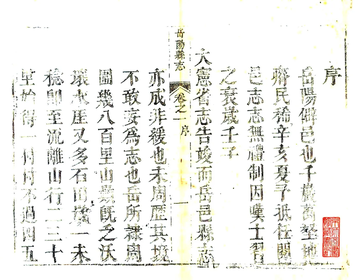 序
岳陽僻邑也千巖萬壑地
瘠民稀辛亥夏予抵任閱
邑志志無體制因嘆士習
之衰歲壬子
岳陽縣志 卷之一 序
大憲省志告竣而岳邑縣志
亦成非緩也未周歷其境
不敢妄為志也岳所轄周
圍幾八百里山既之沃
壤水崖又多石田一未
穩即至流離山行二三十
里始得一村村不過四五